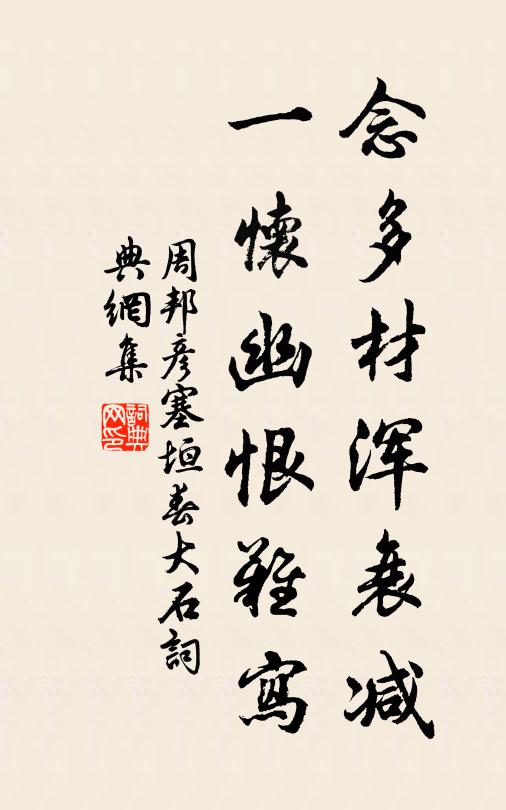 念多材浑衰减
一懷幽恨難寫
周邦彦塞垣春大石詞
典網集
詞典网印